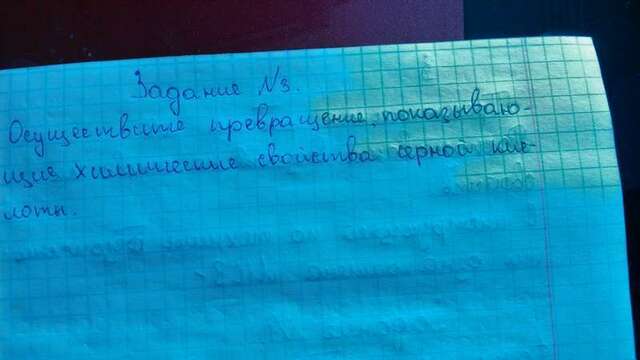 Задание №3.
Осуществите превращение, показываю-
щие химические свойства серной кис-
лоты.